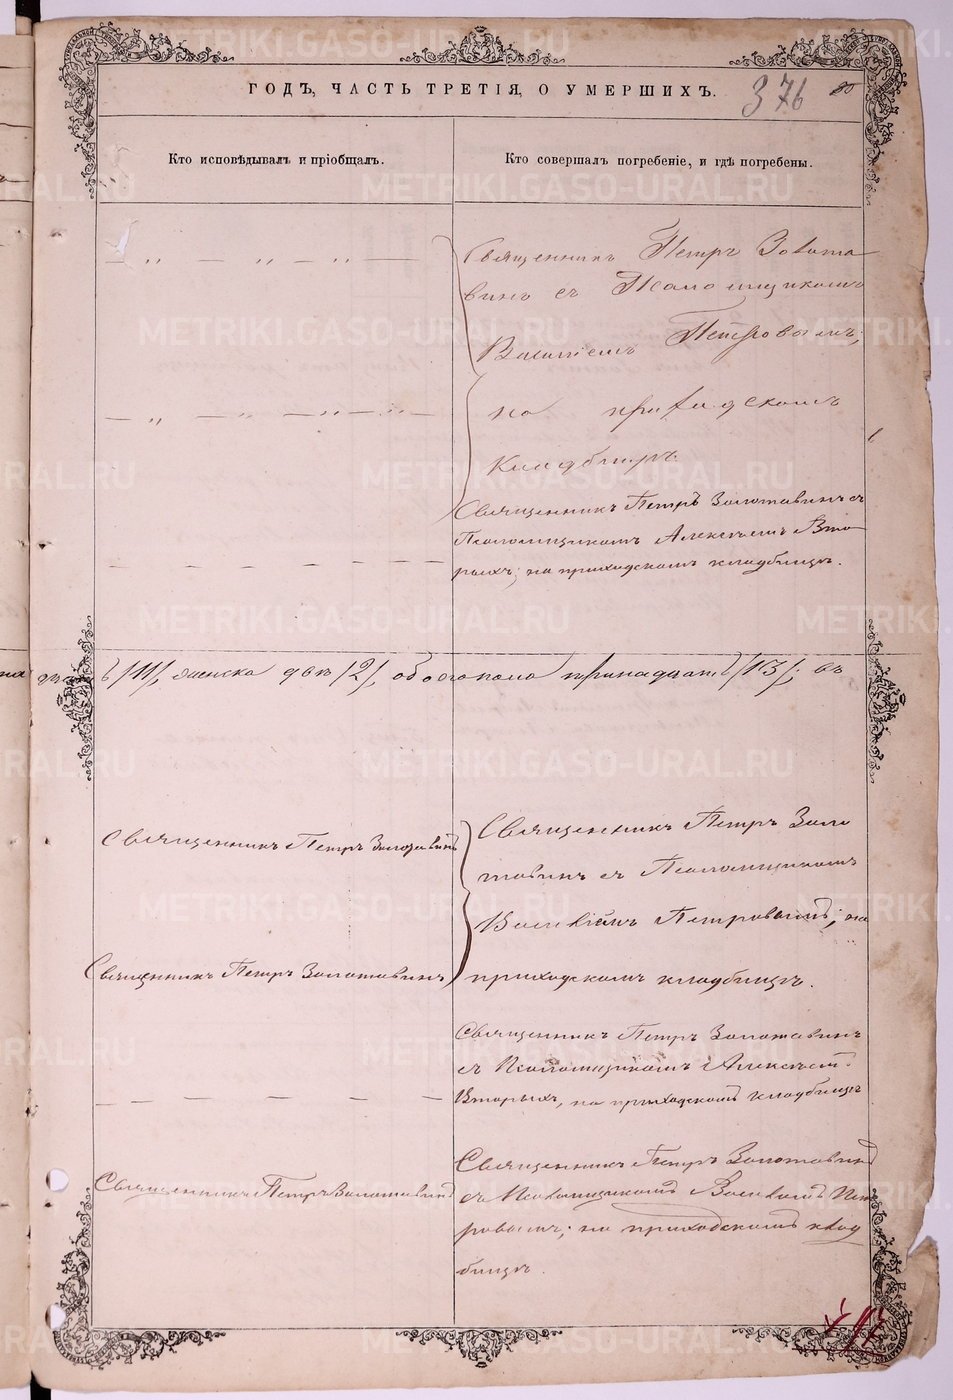 ГОДЪ, ЧАСТЬ ТРЕТІЯ, О УМЕРШИХЪ.
376
Кто исповѣдывалъ и пріобщалъ.
Кто совершалъ погребеніе, и гдѣ погребены.
— „ — „ — „ —
Священникъ Петръ Золота
винъ съ Псаломщикомъ
Василіемъ Петровымъ;
— „ — „ — „ —
на приходскомъ
кладбищѣ.
Священникъ Петръ Золотавинъ съ
Псаломщикомъ Алексѣемъ Вто
рыхъ; на приходскомъ кладбищѣ.
— — — — — — —
/11/, женска двѣ /2/, обоего пола тринадцать /13/; въ
Священникъ Петръ Золотавинъ
Священникъ Петръ Золо
тавинъ съ Псаломщикомъ
Василіемъ Петровымъ; на
Священникъ Петръ Золотавинъ
приходскомъ кладбищѣ.
Священникъ Петръ Золотавинъ
съ Псаломщикомъ Алексѣемъ
Вторыхъ, на приходскомъ кладбищѣ
— — — — — —
Священникъ Петръ Золотавинъ
Священникъ Петръ Золотавинъ
съ Псаломщикомъ Василіемъ Пет
ровымъ; на приходскомъ клад
бищѣ.
METRIKI.GASO-URAL.RU